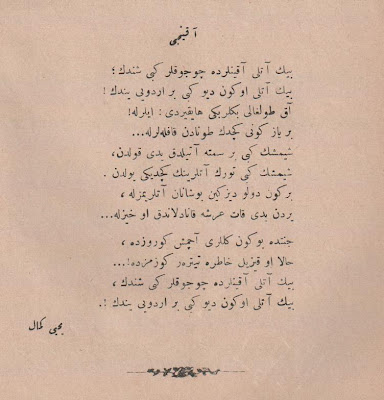 آقینجی
بیك آتلی آقینلرده چوجوقلر كبی شندك ؛
بیك آتلی اوكون دیو كبی بر اردویی یندك !
آق طولغالی بكلربكی هایقیردی : ایلرله!
بر یاز كونی كچدك طونادن قافله‌لرله...
شیمشك كبی بر سمته آتیلدق یدی قولدن،
شیمشك كبی تورك آتلرینك كچدیكی یولدن .
بر كون دولو دیزكین بوشانان آتلریمزله ،
یردن یدی قات عرشه قانادلاندق او خیزله...
جنتده بو كون كللری آچمش كوروزده ،
حالا او قیزیل خاطره تیتره‌ر كوزمزده !...
بیك آتلی آقینلرده چوجوقلر كبی شندك ،
بیك آتلی اوكون دیو كبی بر اردویی یندك !.
یحیی كمال